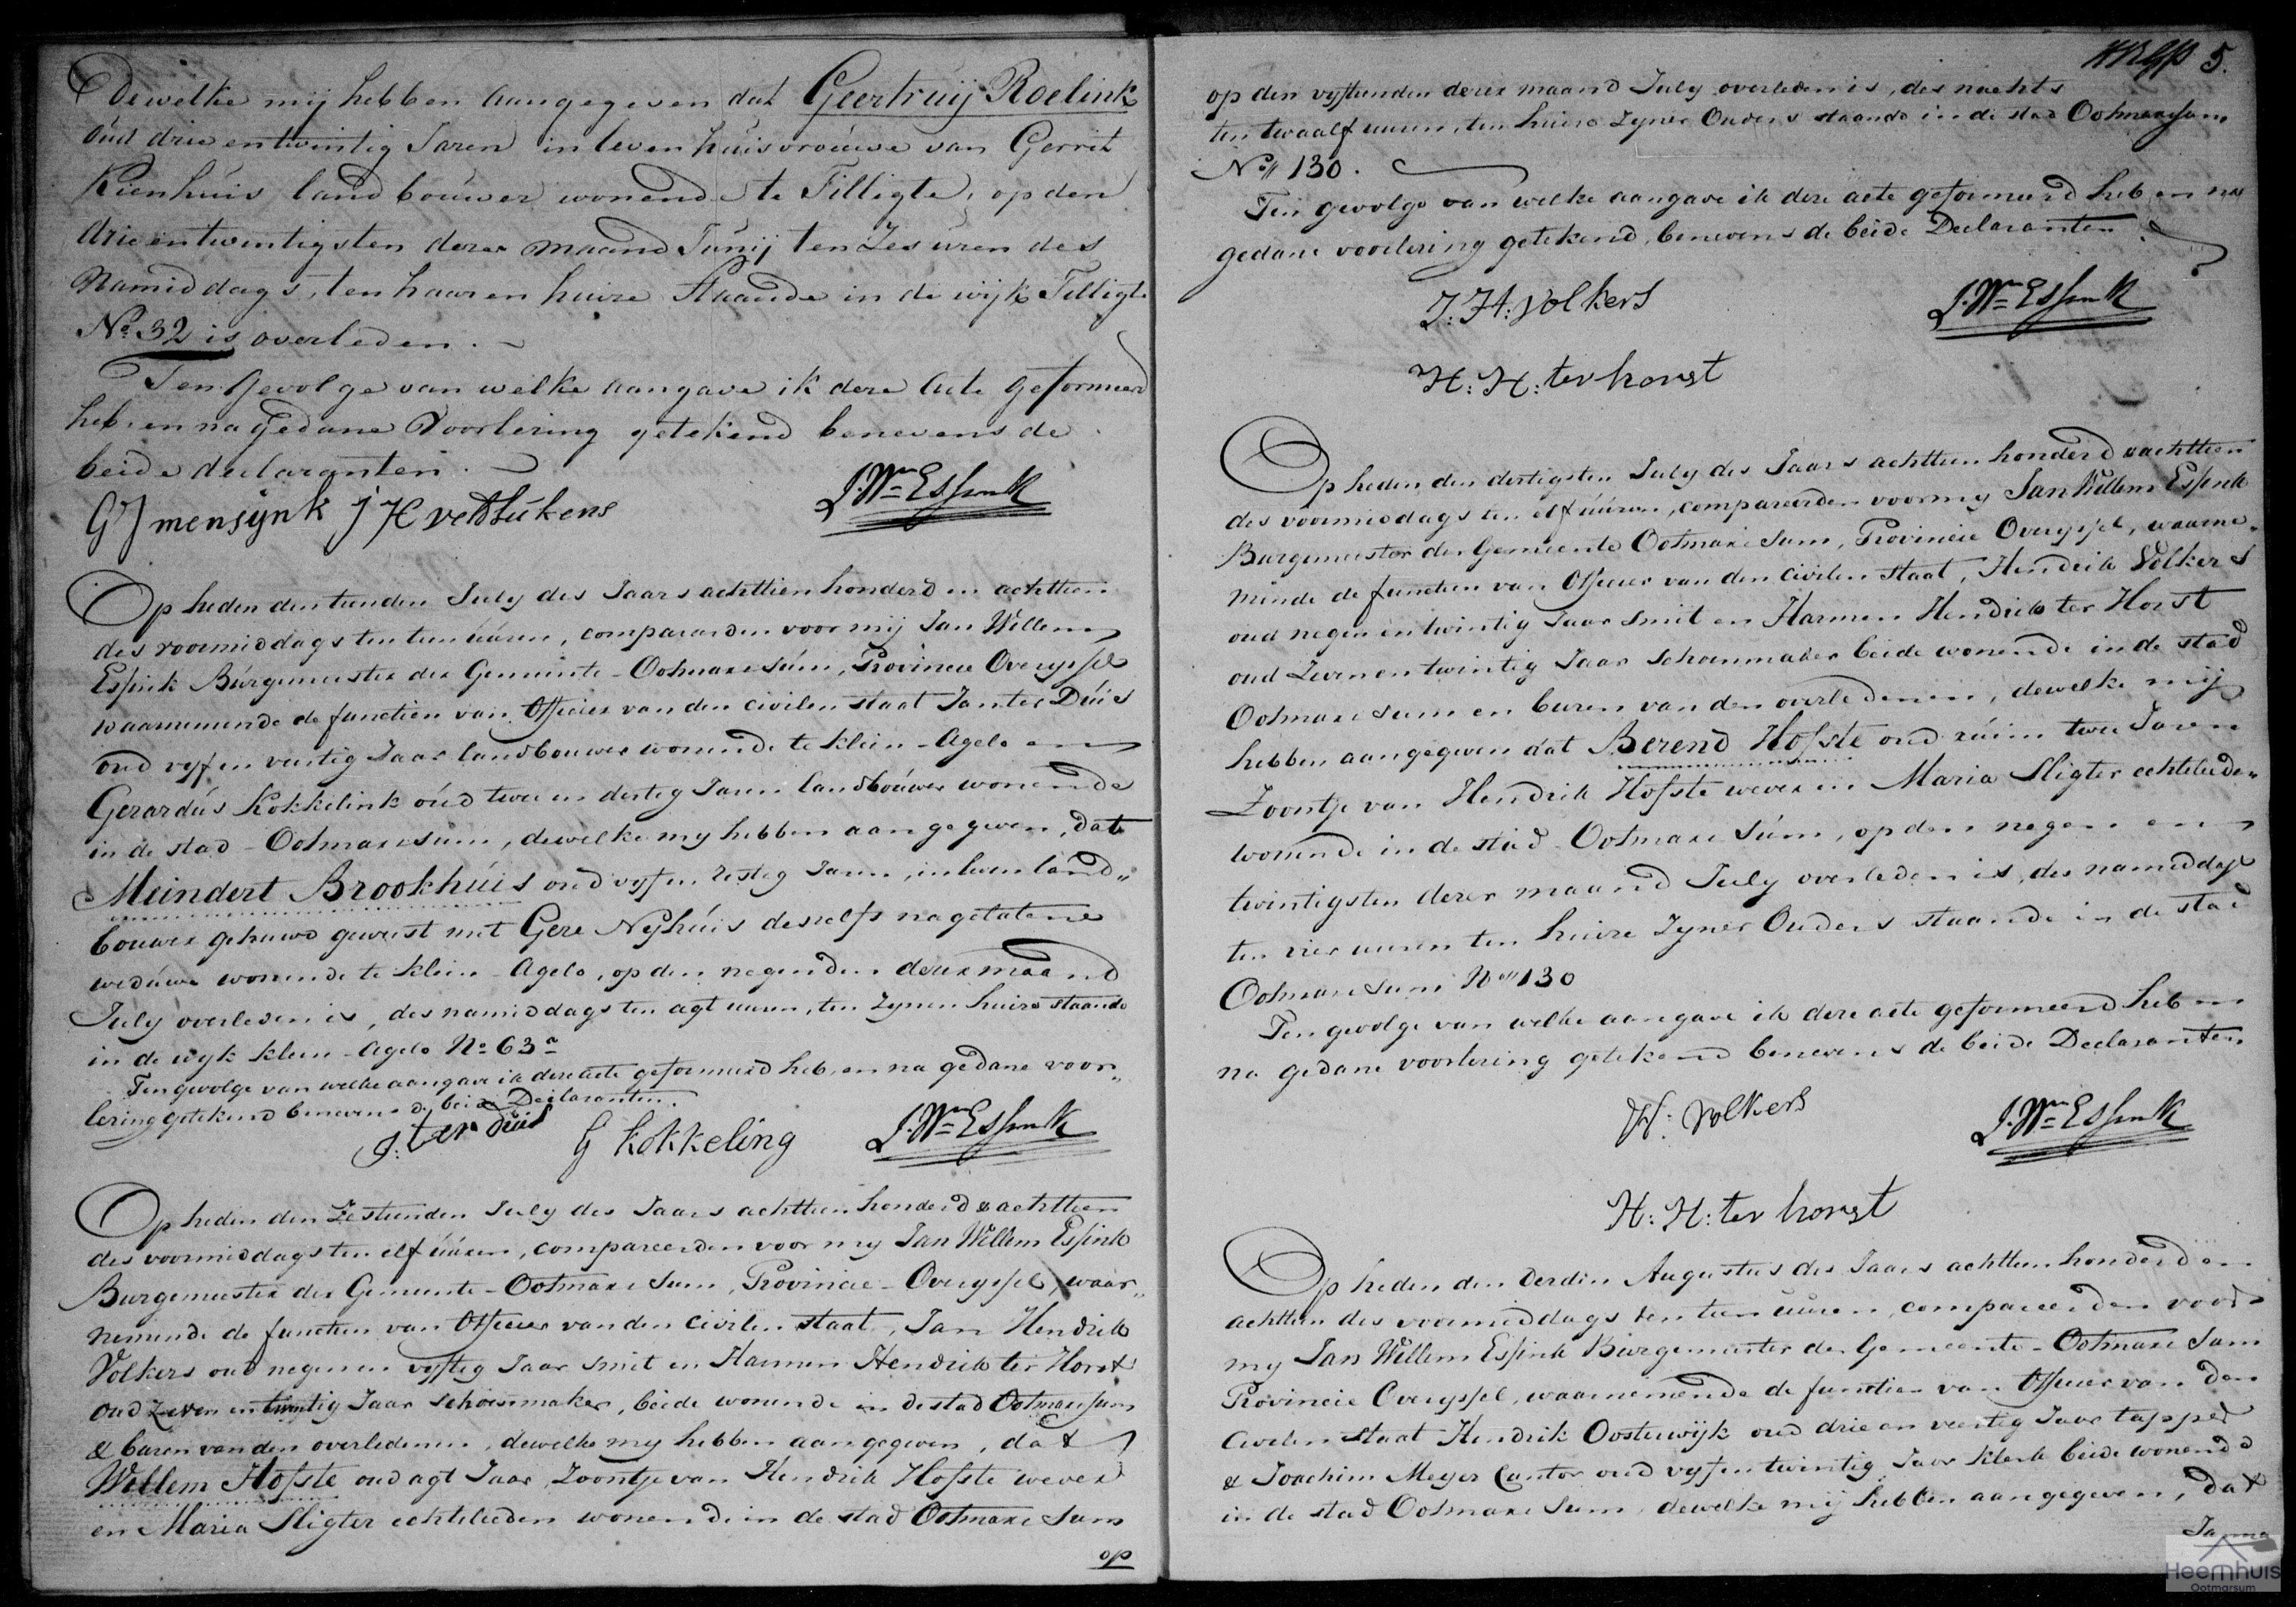 Dewelke mij hebben aangegeven dat Geertruij Roelink
oud drie en twintig Jaren in leven huisvrouwe van Gerrit
Kienhuis landbouwer wonende te Tilligte, op den
drie en twintigsten dezer maand Junij ten Zes uren des
Namiddags, ten haaren huize staande in de wijk Tilligte
No. 32 is overleden.
Ten gevolge van welke aangave ik deze acte geformeerd
heb, en na gedane Voorlezing getekend benevens de
beide declaranten.
GJ mensynk J H veltHukens J. Wm Essink
Op heden den tienden July des Jaars achttien honderd en achttien
des voormiddags ten tien úúren, compareerden voor mij Jan Willem
Essink Burgemeester der Gemeente Ootmarssúm, Provincie Overyssel
waarnemende de functien van Officier van den civilen staat Jan ter Dúis
oud vyf en veertig Jaar landbouwer wonende te klein-Agelo en
Gerardús Kokkelink oúd twee en dertig Jaren landboúwer wonende
in de stad Ootmarssum, dewelke my hebben aangegeven, dat
Meindert Brookhúis oud vyf en zestig Jaren, in leven land„
bouwer gehuwd geweest met Geze Nyhúis deszelfs nagelatene
wedúwe wonende te klein-Agelo, op den negenden dezer maand
July overleden is, des namiddags ten agt uuren, ten zynen huize staande
in de wyk klein-Agelo No 63a
Ten gevolge van welke aangave ik deze acte geformeerd heb, en na gedane voor„
lezing getekend benevens de beide Declaranten.
J: ter duis G kokkeling J. Wm Essink
Op heden den Zestienden July des Jaars achttien honderd & achttien
des voormiddags ten elf úúren, compareerden voor my Jan Willem Essink
Burgemeester der Gemeente Ootmarssum, Provincie Overyssel, waar„
nemende de functien van Officier van den civilen staat, Jan Hendrik
Volkers oud negen en vyftig Jaar smit en Harmen Hendrik ter Horst
oud zeven en twintig Jaar schoenmaker, beide wonende in de stad Ootmarssum
& buren van den overledenen, dewelke my hebben aangegeven, dat
Willem Hofste oud agt Jaar, Zoontje van Hendrik Hofste wever
en Maria Sligter echtelieden wonende in de stad Ootmarssum
op
5.
op den vyftienden dezer maand July overleden is, des nachts
ten twaalf uuren, ten huize zyner Ouders staande in de stad Ootmarssum
No 130.
Ten gevolge van welke aangave ik deze acte geformeerd heb, en na
gedane voorlezing getekend, benevens de beide Declaranten.
J: H: volkers J. Wm Essink
H: H: ter horst
Op heden den dertigsten July des Jaars achttien honderd & achttien
des voormiddags ten elf úúren, compareerden voor my Jan Willem Essink
Burgemeester der Gemeente Ootmarssum, Provincie Overyssel, waarne„
minde de functien van Officier van den civilen staat, Hendrik Volkers
oud negen en twintig Jaar smit en Harmen Hendrik ter Horst
oud Zeven en twintig Jaar schoenmaker beide wonende in de stad
Ootmarssum en buren van den overledenen, dewelke mij
hebben aangegeven dat Berend Hofste oud rúim twee Jaren
Zoontje van Hendrik Hofste wever en Maria Sligter echteliede„
wonende in de stad Ootmarssúm, op den negen en
twintigsten dezer maand July overleden is, des namiddags
ten vier uuren ten huize Zyner Ouders staande in de stad
Ootmarssum No 130
Ten gevolge van welke aangave ik deze acte geformeerd heb en
na gedane voorlezing getekend benevens de beide Declaranten
H: volkers J. Wm Essink
H: H: ter horst
Op heden den Derden Augustus des Jaars achttien honderd en
achttien des voormiddags ten tien uuren, compareerden voor
my Jan Willem Essink Burgemeester der Gemeente Ootmarssum
Provincie Overyssel, waarnemende de functien van Officier van den
Civilen staat Hendrik Oosterwijk oud drie en veertig Jaar tapper
& Joachim Meyer Cantor oud vyf en twintig Jaar klerk beide wonende
in de stad Ootmarssum, dewelke mij hebben aangegeven, dat
Heemhuis
Ootmarsum